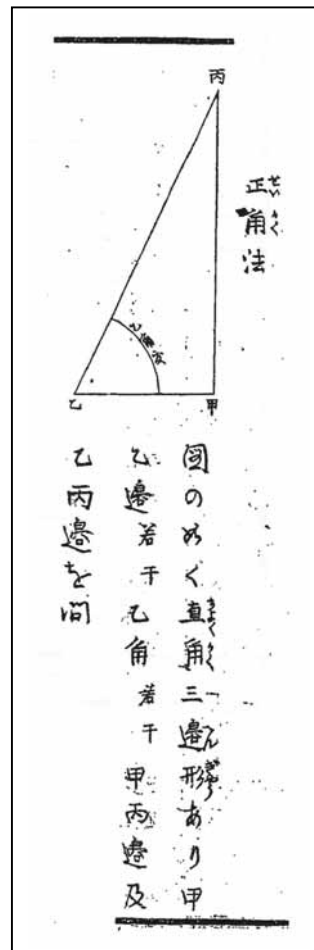 正角法
丙
乙
甲
圖の如く直角三邊形あり甲
乙邊若干乙角若干甲丙邊及
乙丙邊を問